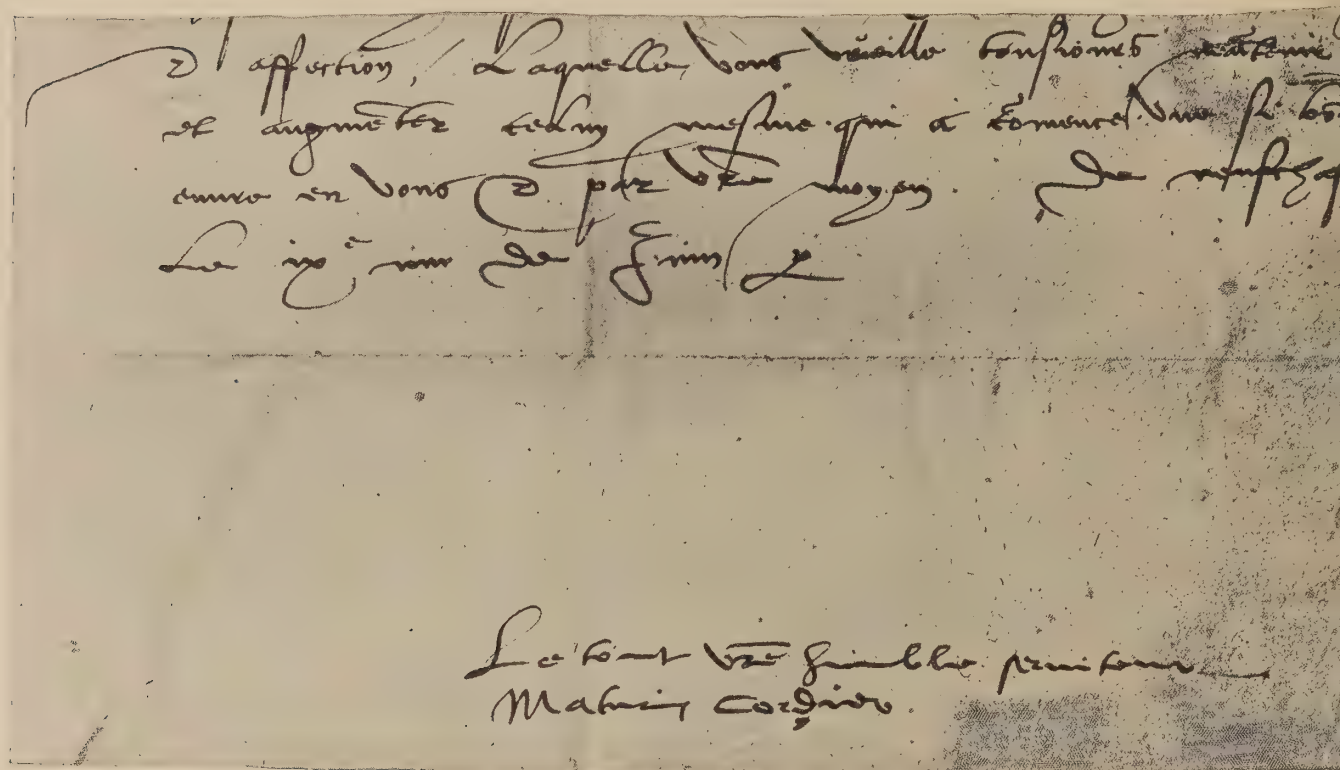 & affection, Laquelle vous vueille tousiours
et augmēter celuy mesme qui a cōmence vne si bō
euure en vous & par vr̄e moyen. De neufchaf
Le ixe iour de Juin
Le tout vr̄e humble seruiteur
Maturin Cordier.